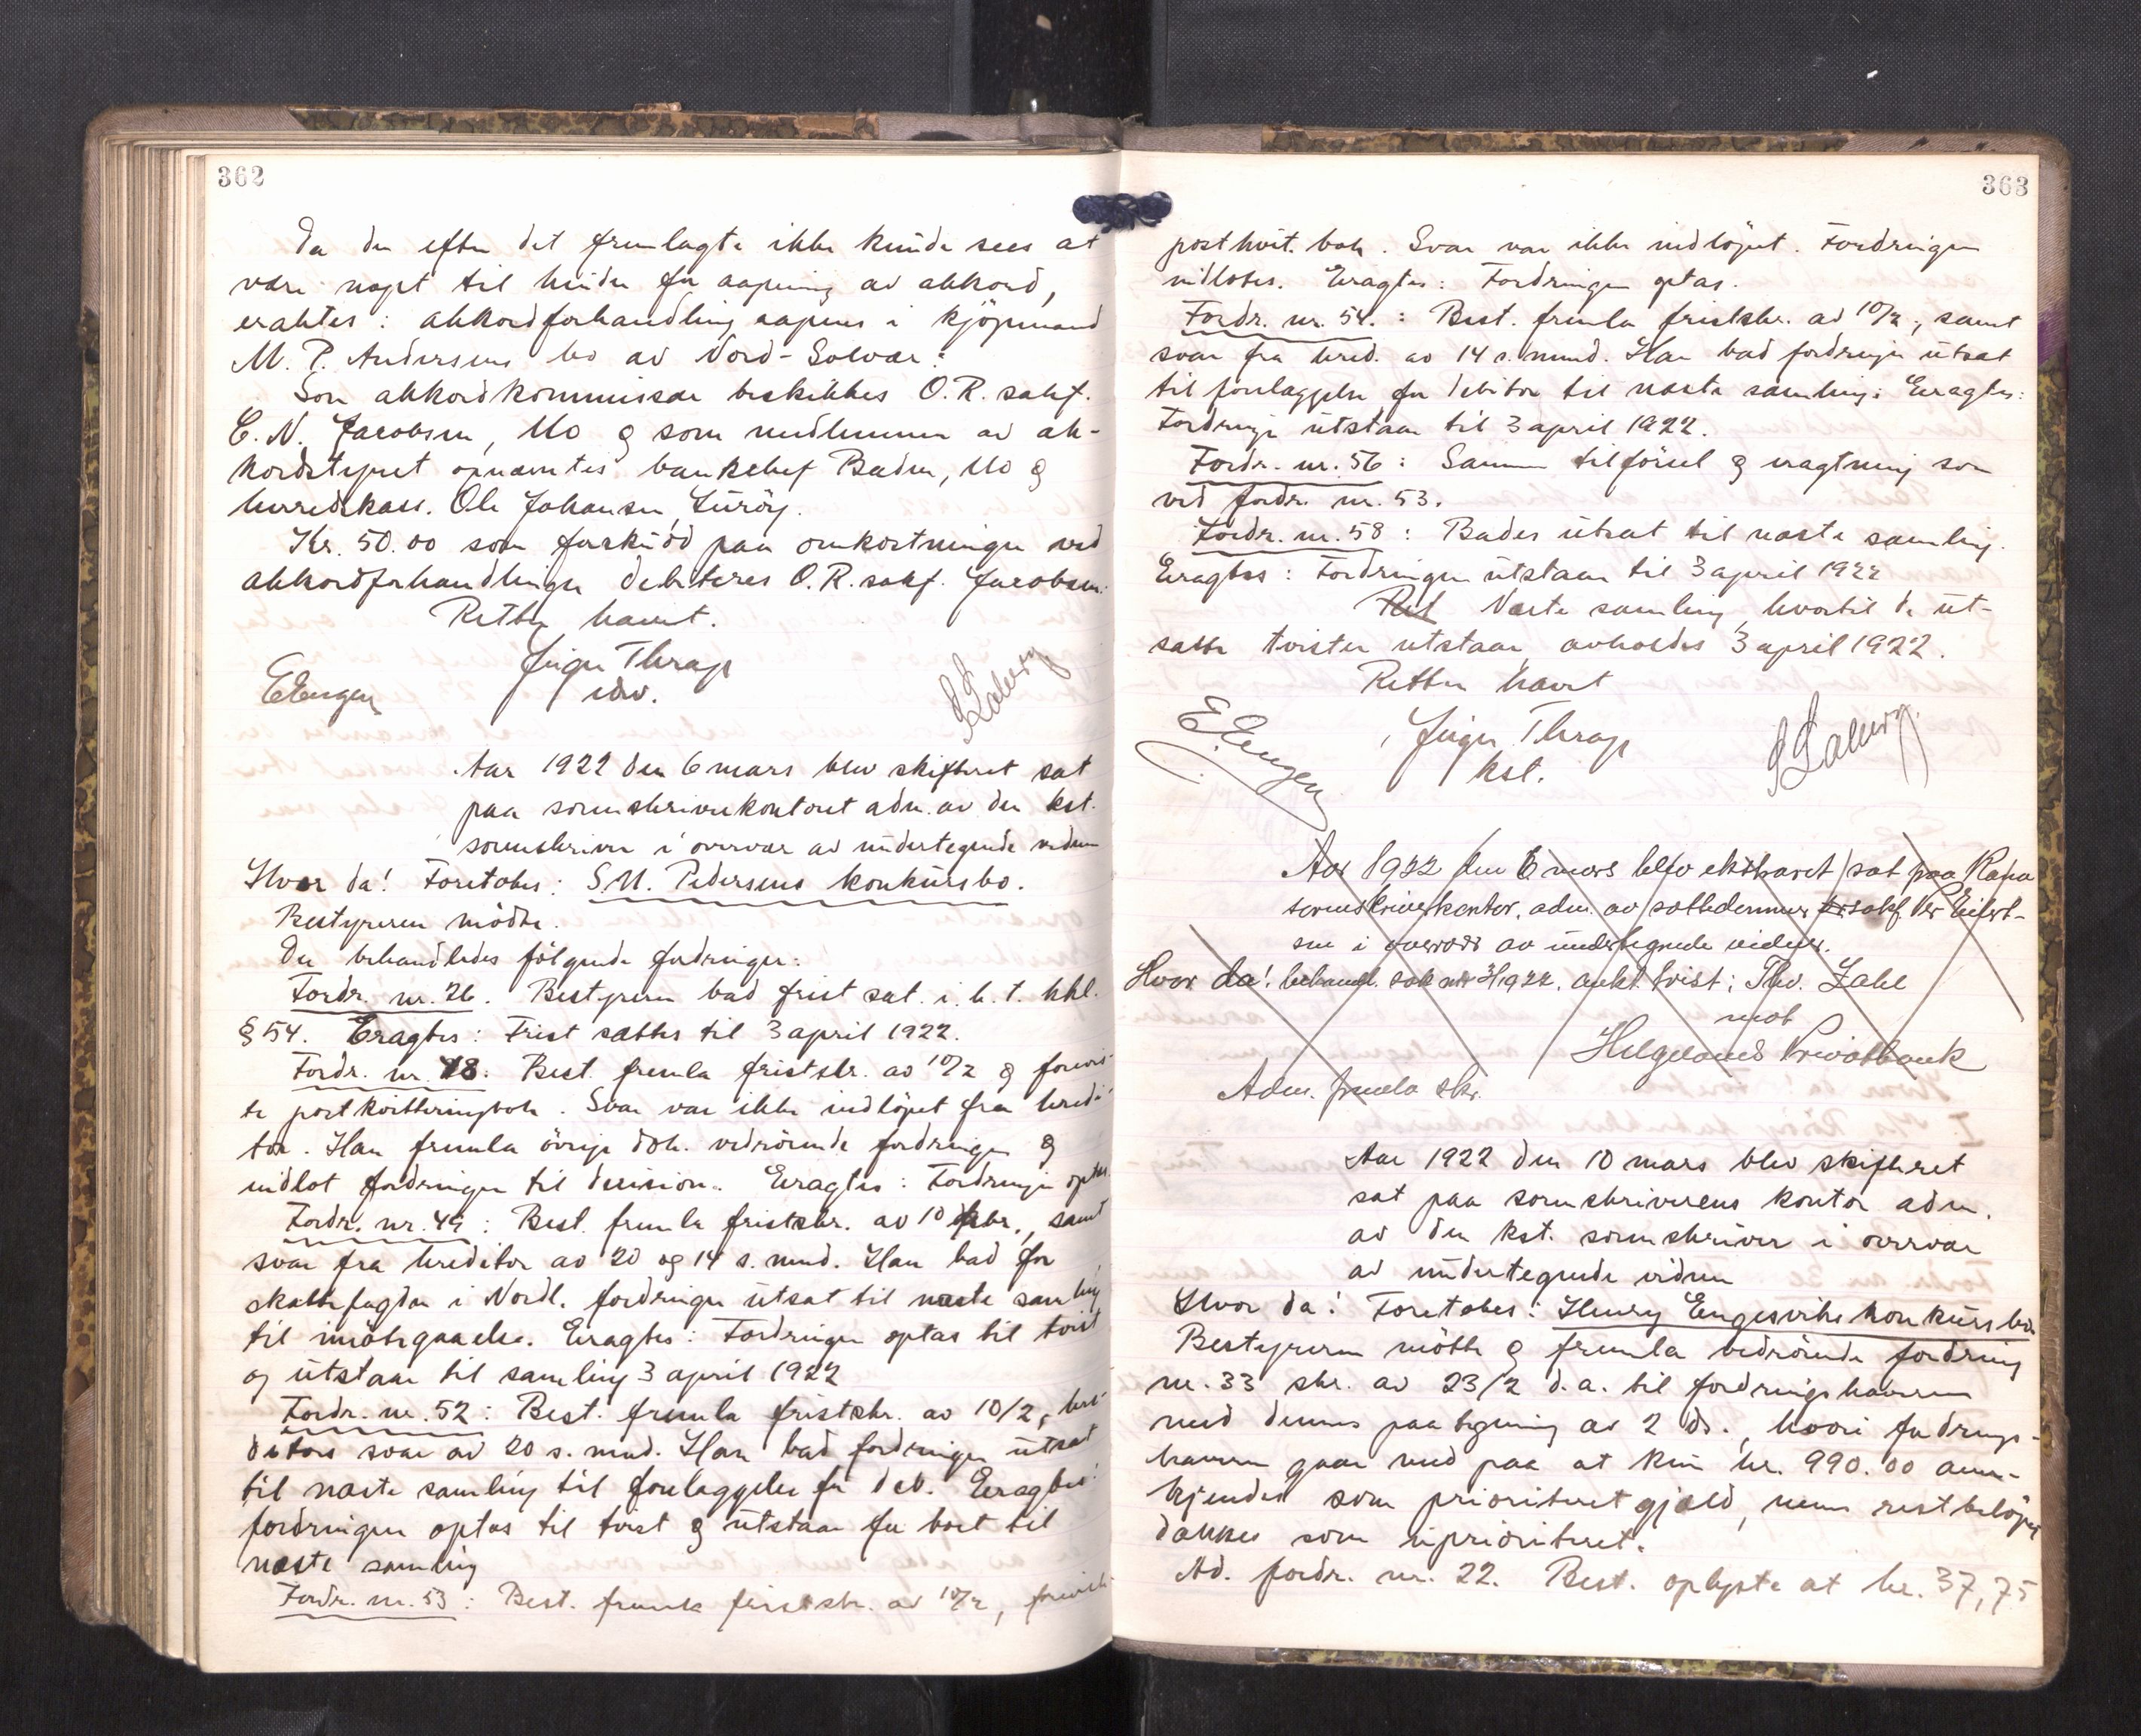 362
Da der efter det fremlagte ikke kunde sees at
være noget til hinder for aapning av akkord,
eraktes: akkordforhandling aapnes i kjöpmand
M. P. Andersens bo av Nord-Solvær.
Som akkordkommissær beskikkes O.R. sakf.
C. N. Jacobsen, Mo og som medlemmer av ak-
kordstyret opnævntes bankchef Baden, Mo og
herredskass. Ole Johansen, Luröy.
Kr. 50.00 som forskud paa omkostninger ved
akkordforhandlingen debiteres O.R. sakf. Jacobsen.
Retten hævet.
Inger Thrap
EEngen
Aar 1922 den 6 mars blev skifteret sat
paa sorenskriverkontoret adm. av den kst.
sorenskriver i overvær av undertegnede vidner
Hvor da! Foretokes: S.M. Pedersens konkursbo.
Bestyreren mödte.
Der behandledes fölgende fordringer:
Fordr. nr. 26. Bestyreren bad frist sat i. h. t. kkl.
§ 54. Eragtes: Frist sættes til 3 april 1922.
Fordr. nr. 48: Best. fremla fristskr. av 10/2 og forevis-
te postkvitteringbok. Svar var ikke indlöpet fra kredi-
tor. Han fremla övrige dok. vedrörende fordringen og
indlot fordringen til decision. Eragtes: Fordringen optas.
Fordr. nr. 49: Best. fremla fristskr. av 10 febr., samt
svar fra kreditor av 20 og 14 s. mnd. Han bad for
skattefogden i Nordl. fordringen utsat til næste samling
til imötegaaelse. Eragtes: Fordringen optas til tvist
og utstaar til samling 3 april 1922
Fordr. nr. 52: Best. fremla fristskr. av 10/2, kre-
ditors svar av 20 s. mnd. Han bad fordringen utsat
til næste samling til forelæggelse for deb. Eragtes:
fordringen optas til tvist og utstaar for bort til
næste samling
Fordr. nr. 53: Best. fremla fristskr. av 10/2, foreviste
363
post kvit. bok. Svar var ikke indlöpet. Fordringen
indlotes. Eragtes: Fordringen optas.
Fordr. nr. 54.: Best. fremla fristskr. av 10/2, samt
svar fra kred. av 14 s. mnd. Han bad fordringen utsat
til forelæggelse for debitor til næste samling: Eragtes:
Fordringen utstaar til 3 april 1922.
Fordr. nr. 56: Samme tilförsel og eragtning som
ved fordr. nr. 53.
Fordr. nr. 58: Bades utsat til næste samling.
Eragtes: Fordringen utstaar til 3 april 1922
Ret Næste samling, hvortil de ut-
satte tvister utstaar, avholdes 3 april 1922.
Retten hævet
E.Engen
Inger Thrap
kst.
Aar 1922 den 6 mars blev ekstraret sat paa Rana
sorenskriverkontor, adm. av sættedommer sakf. Per Eilert-
sen i overvær av undertegnede vidner.
Hvor da! behandl. sak nr 3/1922. ankt. tvist: Thv. Zahl
mot
Helgelands Privatbank
Adm. fremla skr.
Aar 1922 den 10 mars blev skifteret
sat paa sorenskriverens kontor adm.
av den kst. sorenskriver i overvær
av undertegnede vidner
Hvor da! Foretokes: Henry Engesviks konkursbo
Bestyreren mötte og fremla vedrörende fordring
nr. 33 skr. av 23/2 d.a. til fordringshaveren
med dennes paategning av 2 ds., hvori fordrings-
haveren gaar med paa at kun kr. 990.00 aner-
kjendes som prioritert gjæld, mens restbelöpet
dækkes som uprioriteret.
Ad. fordr. nr. 22. Best. oplyste at kr. 37,75